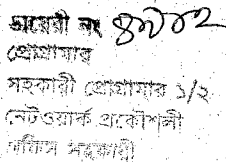 ডায়েরী নং ৪৯৮২
প্রোগ্রামার
সহকারী প্রোগ্রামার ১/২
নেটওয়ার্ক প্রকৌশলী
অফিস সহকারী